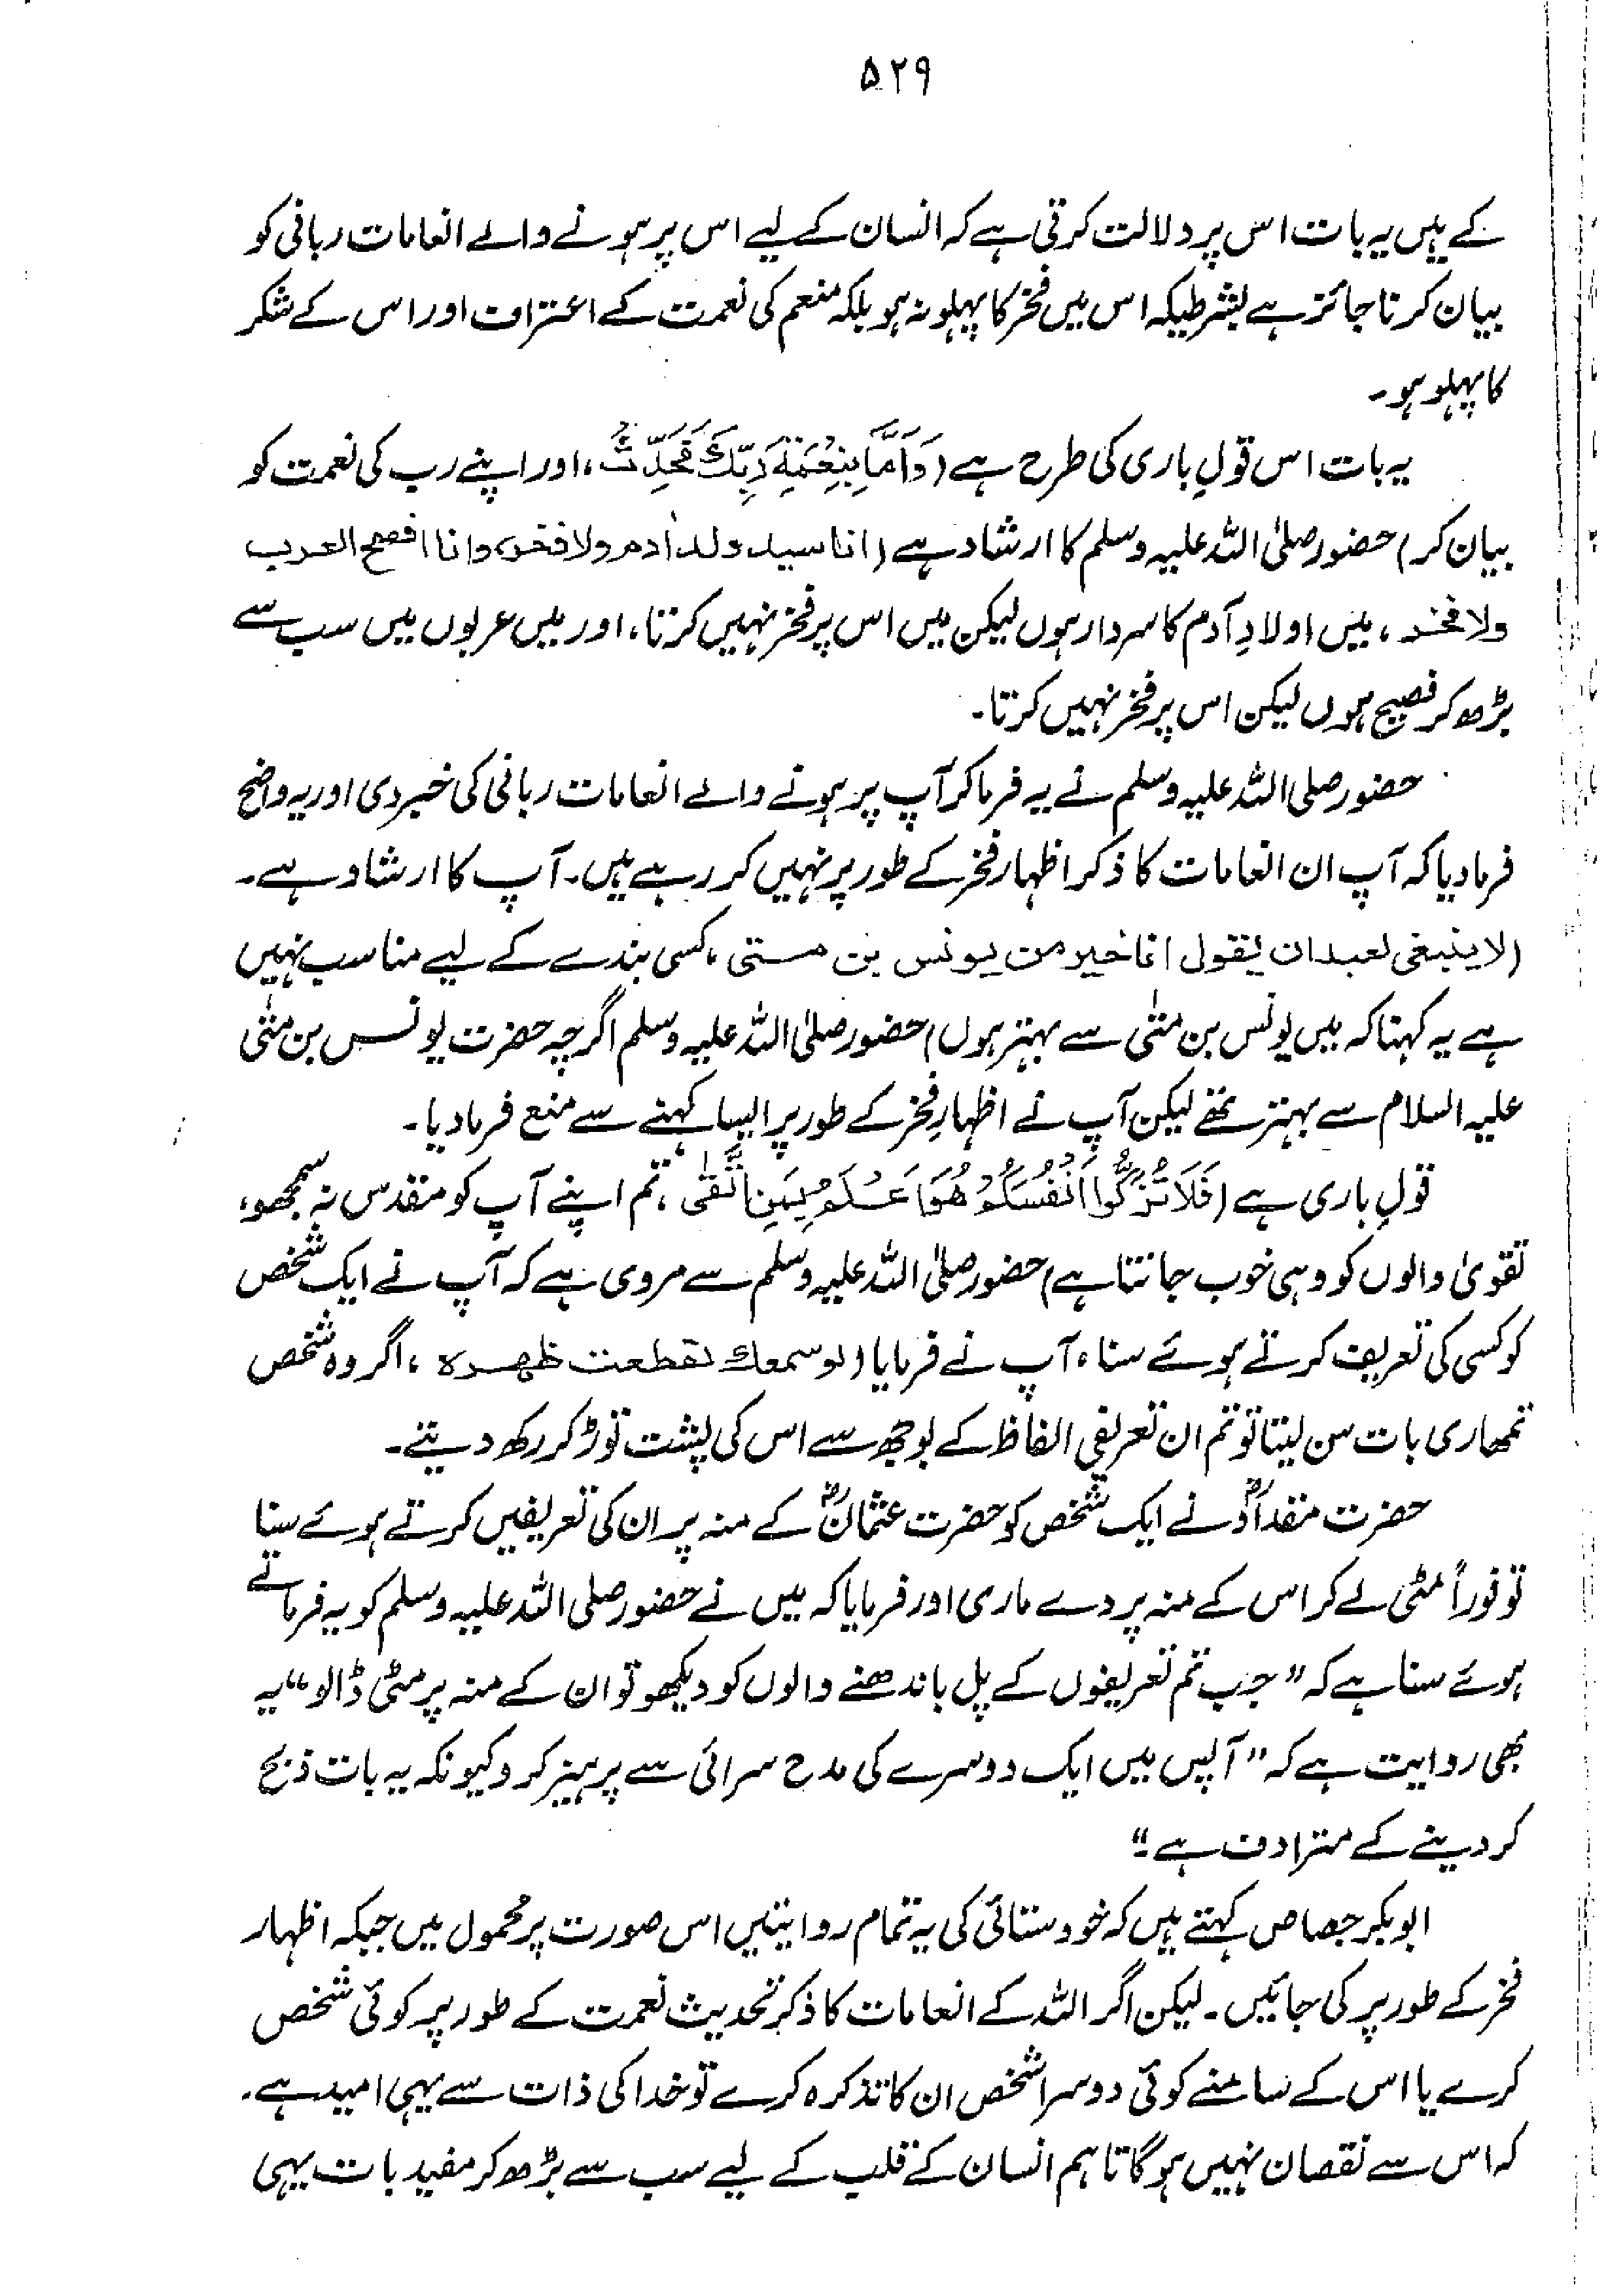 ۵۲۹
کے ہیں یہ بات اس پر دلالت کرتی ہے کہ انسان کے لیے اس پر ہونے والے انعامات ربانی کو
بیان کرنا جائز ہے بشرطیکہ اس میں فخر کا پہلو نہ ہو بلکہ منعم کی نعمت کے اعتراف اور اس کے شکر
کا پہلو ہو۔
یہ بات اس قولِ باری کی طرح ہے (وَاَمَّا بِنِعْمَةِ رَبِّكَ فَحَدِّثْ، اور اپنے رب کی نعمت کو
بیان کر) حضور صلی اللہ علیہ وسلم کا ارشاد ہے (انا سید ولد اٰدم ولا فخر، وانا افصح العرب
ولا فخر، میں اولادِ آدم کا سردار ہوں لیکن میں اس پر فخر نہیں کرتا، اور میں عربوں میں سب سے
بڑھ کر فصیح ہوں لیکن اس پر فخر نہیں کرتا۔
حضور صلی اللہ علیہ وسلم نے یہ فرما کر آپ پر ہونے والے انعامات ربانی کی خبر دی اور یہ واضح
فرما دیا کہ آپ ان انعامات کا ذکر اظہار فخر کے طور پر نہیں کر رہے ہیں۔ آپ کا ارشاد ہے۔
(لا ینبغی لعبد ان یقول انا خیر من یونس بن متی، کسی بندے کے لیے مناسب نہیں
ہے یہ کہنا کہ میں یونس بن متیٰ سے بہتر ہوں) حضور صلی اللہ علیہ وسلم اگرچہ حضرت یونس بن متیٰ
علیہ السلام سے بہتر تھے لیکن آپ نے اظہارِ فخر کے طور پر ایسا کہنے سے منع فرما دیا۔
قولِ باری ہے (فَلَا تُزَكُّوْا اَنْفُسَكُمْ هُوَ اَعْلَمُ بِمَنِ اتَّقٰى، تم اپنے آپ کو مقدس نہ سمجھو،
تقویٰ والوں کو وہی خوب جانتا ہے) حضور صلی اللہ علیہ وسلم سے مروی ہے کہ آپ نے ایک شخص
کو کسی کی تعریف کرتے ہوئے سنا، آپ نے فرمایا (لو سمعك لقطعت ظهره، اگر وہ شخص
تمھاری بات سن لیتا تو تم ان تعریفی الفاظ کے بوجھ سے اس کی پشت توڑ کر رکھ دیتے۔
حضرت مقدادؓ نے ایک شخص کو حضرت عثمانؓ کے منہ پر ان کی تعریفیں کرتے ہوئے سنا
تو فوراً مٹی لے کر اس کے منہ پر دے ماری اور فرمایا کہ میں نے حضور صلی اللہ علیہ وسلم کو یہ فرماتے
ہوئے سنا ہے کہ "جب تم تعریفوں کے پل باندھنے والوں کو دیکھو تو ان کے منہ پر مٹی ڈالو" یہ
بھی روایت ہے کہ "آپس میں ایک دوسرے کی مدح سرائی سے پرہیز کرو کیونکہ یہ بات ذبح
کر دینے کے مترادف ہے۔"
ابوبکر جصاص کہتے ہیں کہ خودستائی کی یہ تمام روایتیں اس صورت پر محمول ہیں جبکہ اظہار
فخر کے طور پر کی جائیں۔ لیکن اگر اللہ کے انعامات کا ذکر تحدیث نعمت کے طور پر کوئی شخص
کرے یا اس کے سامنے کوئی دوسرا شخص ان کا تذکرہ کرے تو خدا کی ذات سے یہی امید ہے۔
کہ اس سے نقصان نہیں ہوگا تاہم انسان کے قلب کے لیے سب سے بڑھ کر مفید بات یہی